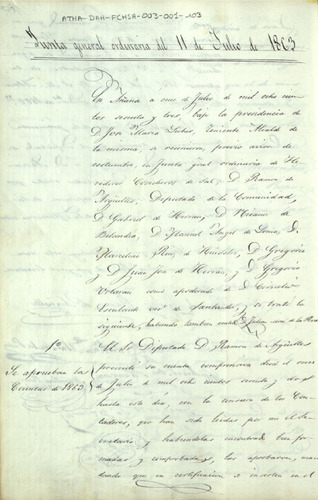 ATHA-DAH-FCHSA-003-001-103
Junta general ordinaria del 11 de Julio de 1863
En Añana a once de Julio de mil ocho cien
tos sesenta y tres, bajo la presidencia de
D. José Maria Teniente Alcalde de
la misma, se reunieron, previo aviso de
costumbre, en Junta gral ordinaria de He
rederos Cosecheros de Sal, D. Ramon de
Arguelles, Diputado de la Comunidad,
D. Gabriel de Herran, D. de
D. Manuel Angel de D.
Marcelino de D. Gregorio
y D. Juan José de Herran, y D. Gregorio
como apoderado de D. Cornelio
Escalante vecº de Santander, y se trató lo
siguiente, habiendo tambien D. Julian de la
1º
El Sr Diputado D. Ramon de Argüelles
Se aprueban las
presentó su cuenta comprensiva desde el once
Cuentas de 1863.
de Julio de mil ocho cientos sesenta y dos
hasta este dia, con la censura de los Con
tadores, que han sido leidas por mi el Se
cretario y habiendolas encontrado bien for
madas y comprobadas, las aprobaron, man
dando que su certificacion se inserte en el